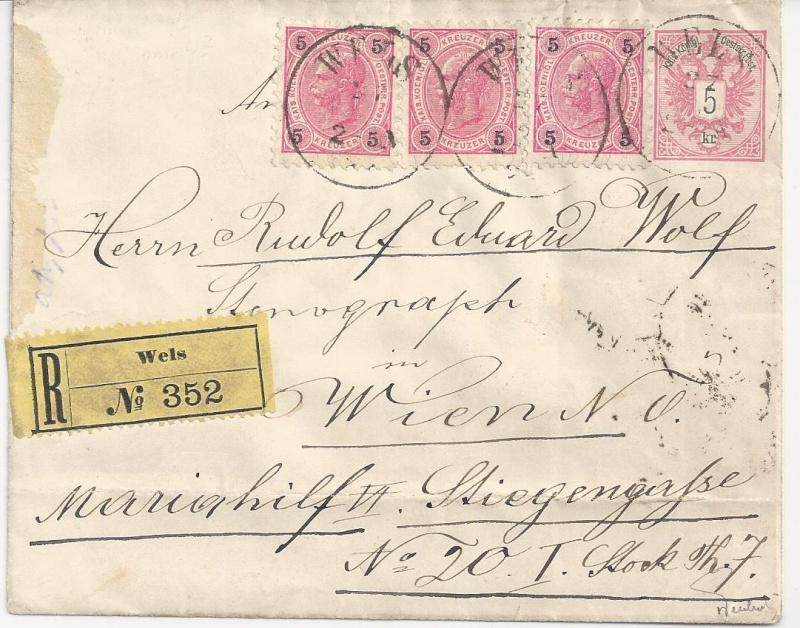 5 5 5 5 5 5
KREUZER KREUZER KREUZER
KAIS. KOENIGL. OESTERR. POST KAIS. KOENIGL. OESTERR. POST KAIS. KOENIGL. OESTERR. POST
5 5 5 5 5 5
KREUZER KREUZER KREUZER
WELS
WELS
5
kr.
An
Herrn Rudolf Eduard Wolf
Stenograph
in
Wien N. Ö.
Mariahilf VI. Stiegengaſse
No 20 I. Stock Th. 7.
R
Wels
No 352